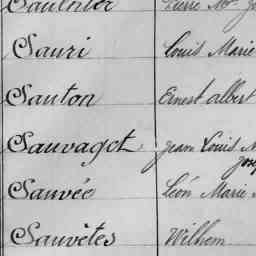 Saulnier Pierre M
Sauri Louis Marie
Sauton Ernest Albert
Sauvaget Jean Louis
Sauvée Léon Marie
Sauvêtes Wilhem